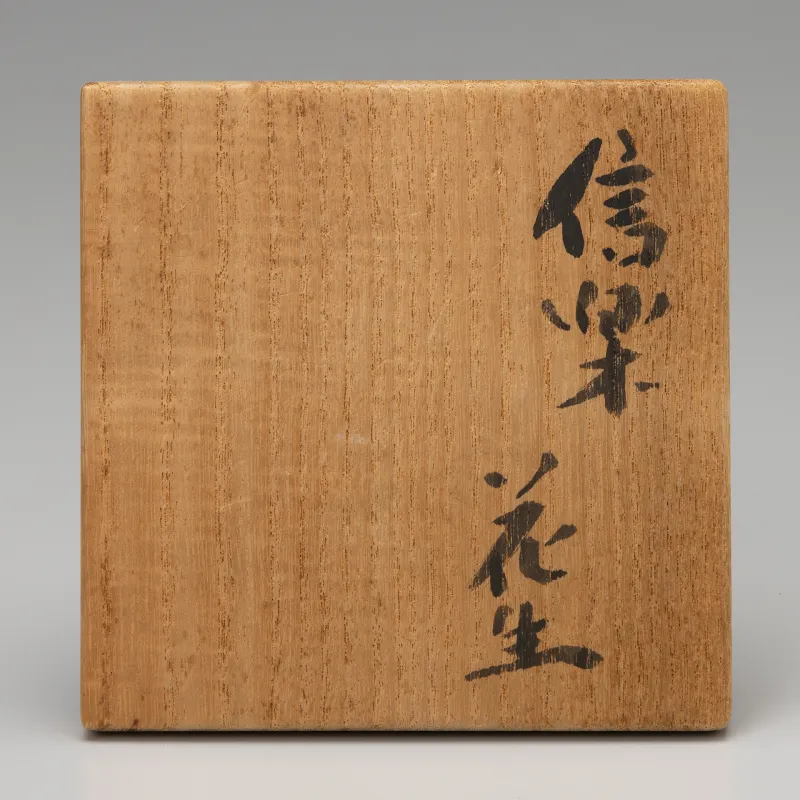 信楽
花生